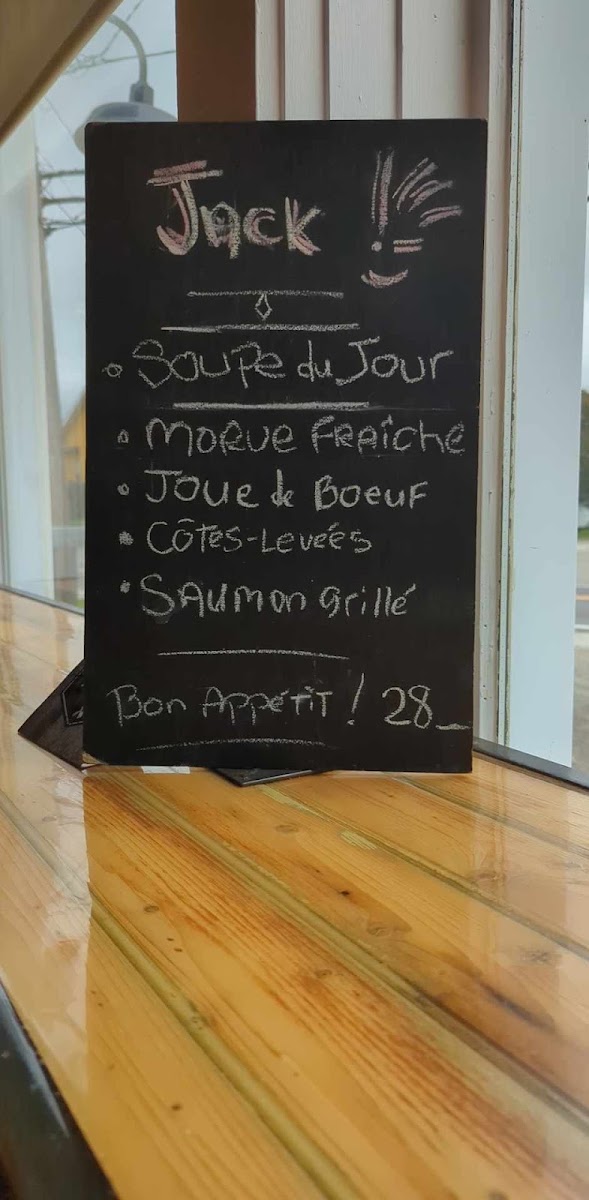 Jack
Soupe du Jour
Morue Fraîche
Joue de Boeuf
Côtes-Levées
Saumon grillé
Bon Appétit ! 28_